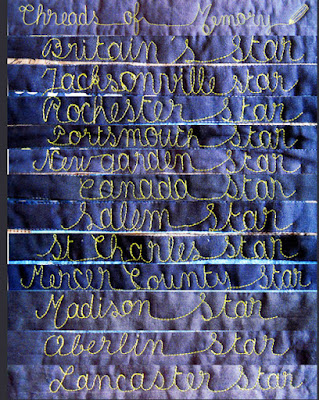 Threads of Memory
Britain's Star
Jacksonville star
Rochester Star
Portsmouth Star
New garden Star
Canada Star
Salem Star
St Charles' Star
Mercer County Star
Madison Star
Oberlin Star
Lancaster Star